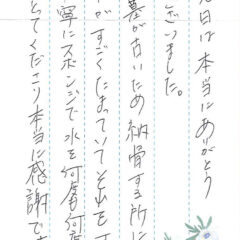 先日は本当にありがとう
ございました。
墓が古いため納骨する所に
がすごくたまっていてそれを
寧にスポンジで水を何度も何度
とてくださり本当に感謝で